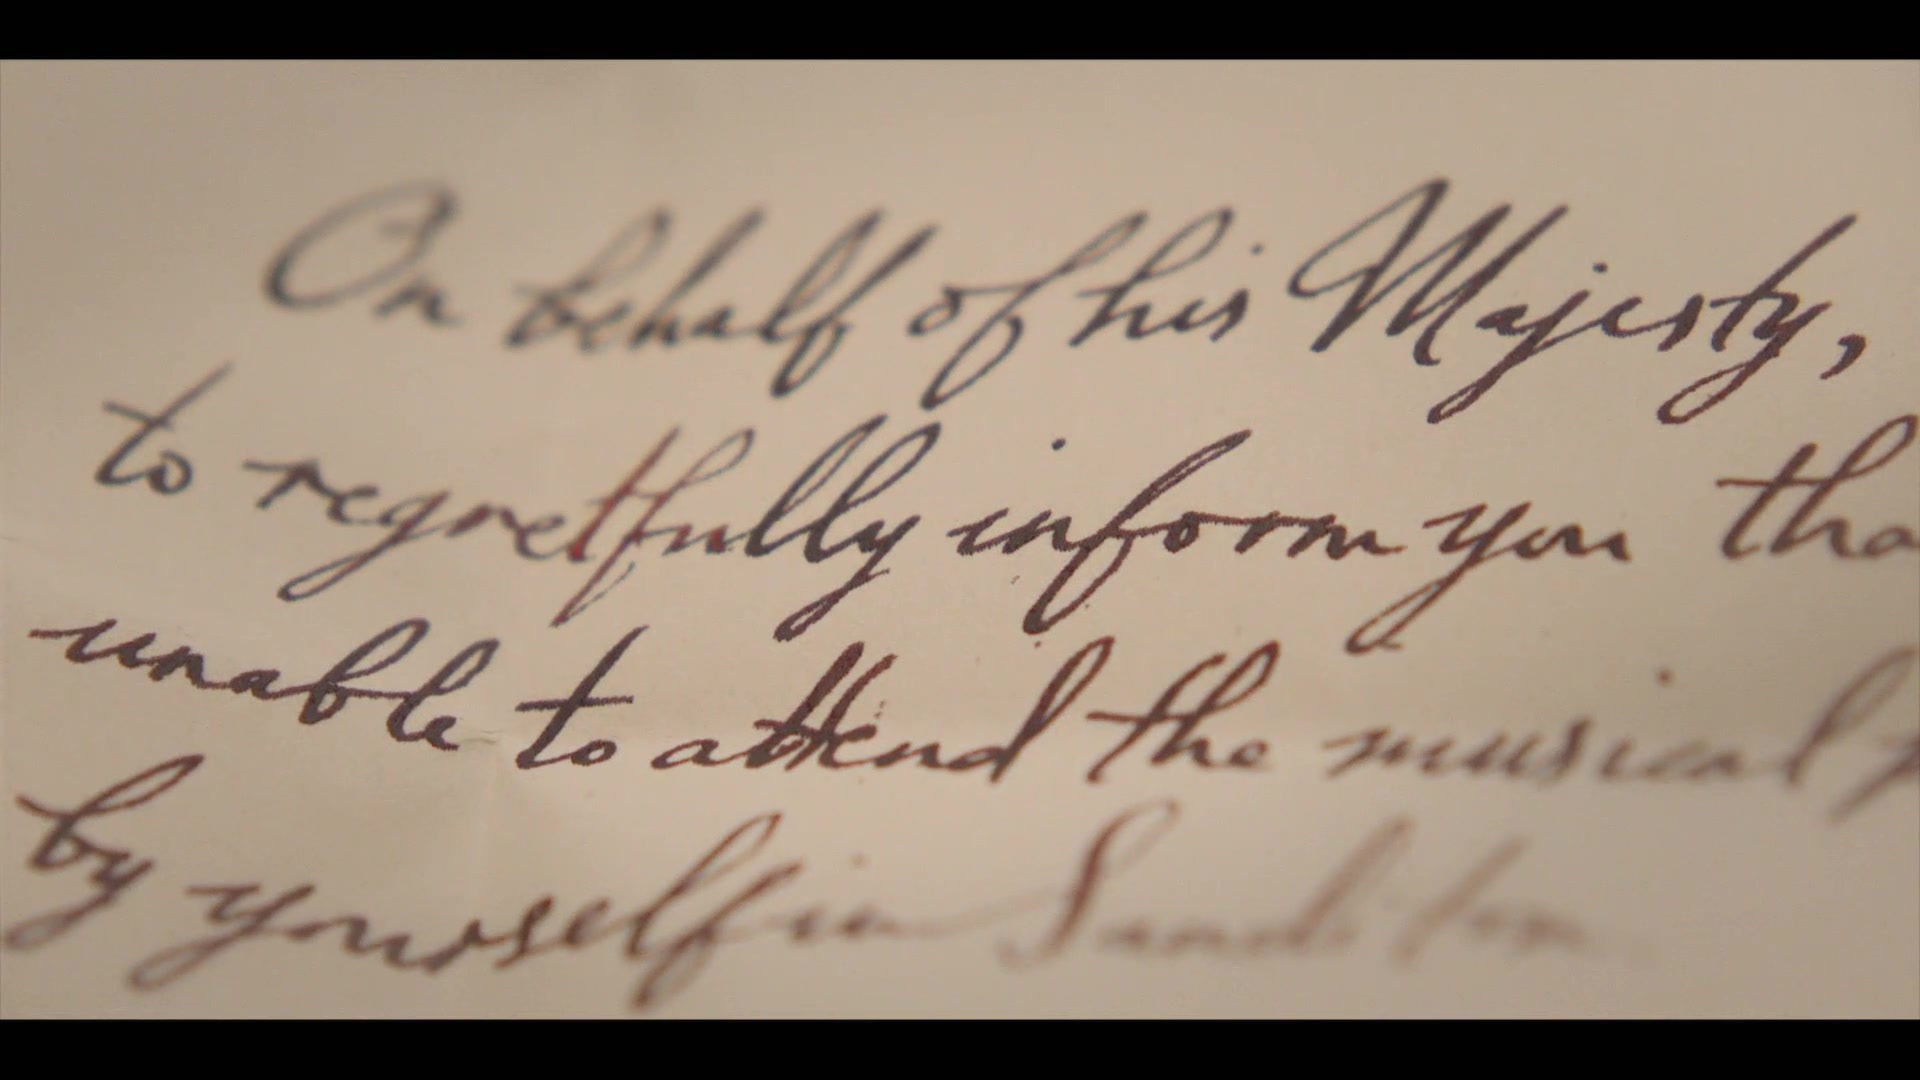 On behalf of his Majesty,
to regretfully inform you tha
unable to attend the musical
by yourself in Sanditon